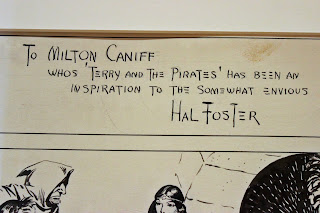 TO MILTON CANIFF
WHOS 'TERRY AND THE PIRATES' HAS BEEN AN
INSPIRATION TO THE SOMEWHAT ENVIOUS
HAL FOSTER